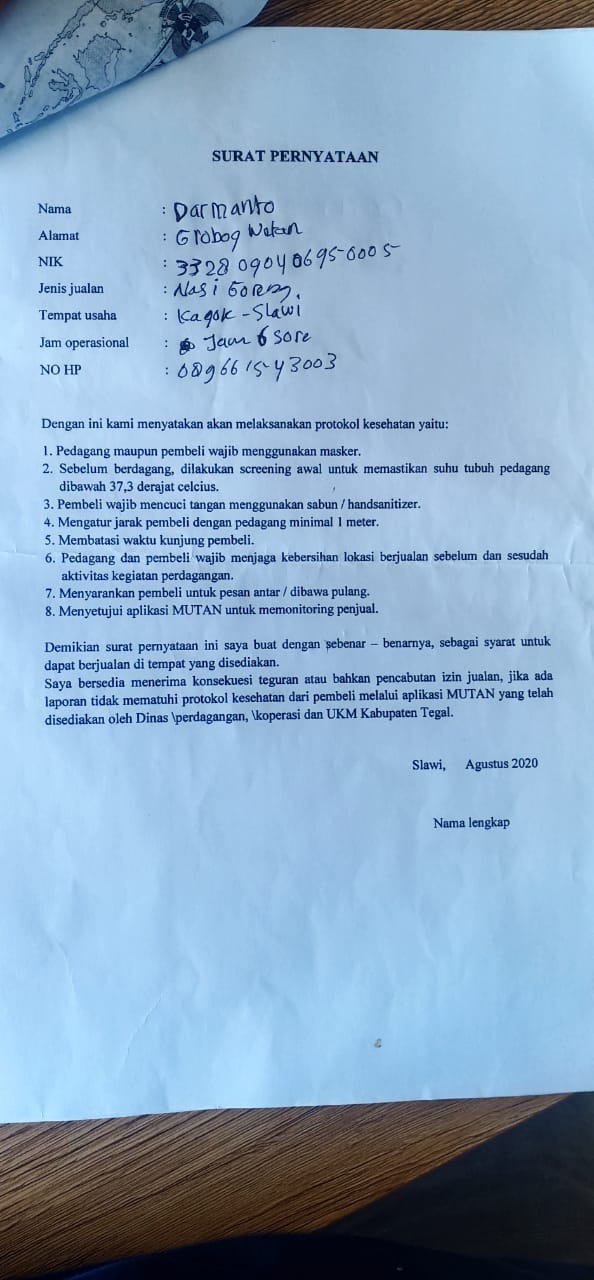 SURAT PERNYATAAN
Nama : Darmanto
Alamat : Grobog Wetan
NIK : 33280904 0695-0005
Jenis jualan : Nasi Goreng.
Tempat usaha : Kagok - Slawi
Jam operasional : Jam 6 Sore
NO HP : 089661543003
Dengan ini kami menyatakan akan melaksanakan protokol kesehatan yaitu:
1. Pedagang maupun pembeli wajib menggunakan masker.
2. Sebelum berdagang, dilakukan screening awal untuk memastikan suhu tubuh pedagang
dibawah 37,3 derajat celcius.
3. Pembeli wajib mencuci tangan menggunakan sabun / handsanitizer.
4. Mengatur jarak pembeli dengan pedagang minimal 1 meter.
5. Membatasi waktu kunjung pembeli.
6. Pedagang dan pembeli wajib menjaga kebersihan lokasi berjualan sebelum dan sesudah
aktivitas kegiatan perdagangan.
7. Menyarankan pembeli untuk pesan antar / dibawa pulang.
8. Menyetujui aplikasi MUTAN untuk memonitoring penjual.
Demikian surat pernyataan ini saya buat dengan sebenar – benarnya, sebagai syarat untuk
dapat berjualan di tempat yang disediakan.
Saya bersedia menerima konsekuesi teguran atau bahkan pencabutan izin jualan, jika ada
laporan tidak mematuhi protokol kesehatan dari pembeli melalui aplikasi MUTAN yang telah
disediakan oleh Dinas \perdagangan, \koperasi dan UKM Kabupaten Tegal.
Slawi, Agustus 2020
Nama lengkap